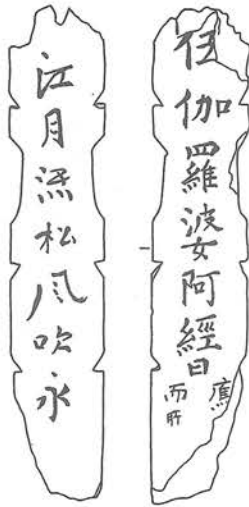 伽羅婆阿經曰
而
江月照松風吹永